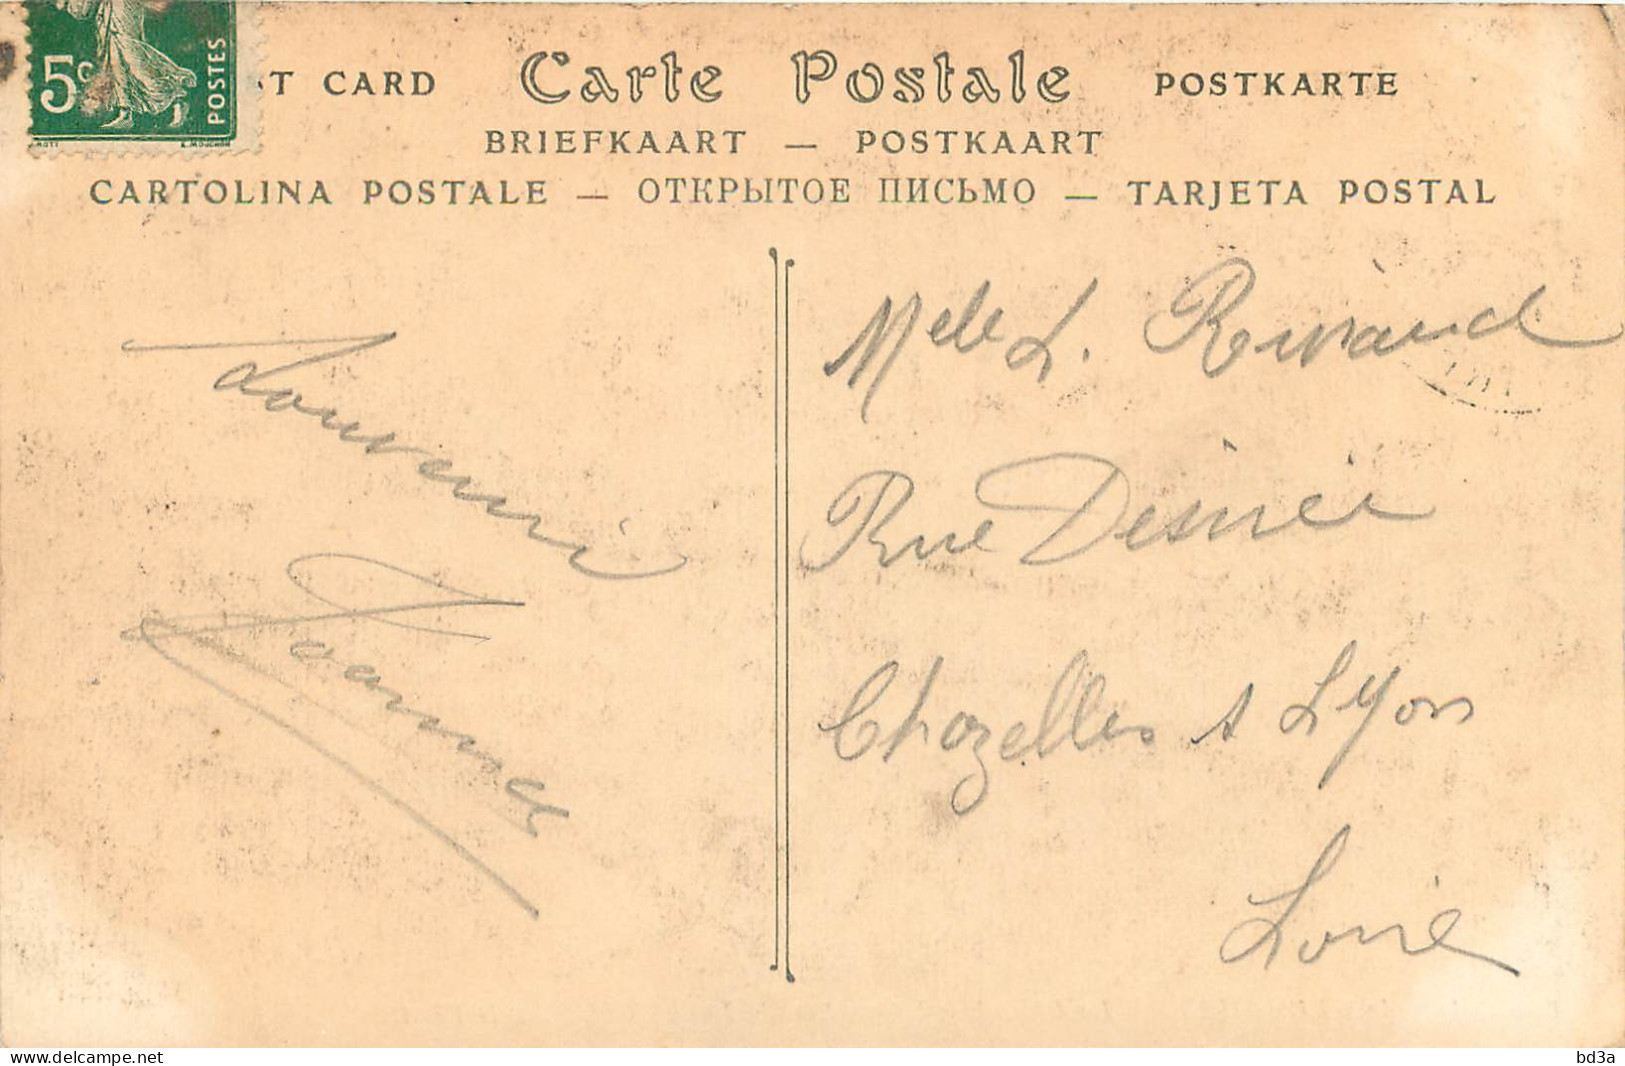 5c
POSTES
ROTY
E. MOUCHON
T CARD
Carte Postale
POSTKARTE
BRIEFKAART — POSTKAART
CARTOLINA POSTALE — ОТКРЫТОЕ ПИСЬМО — TARJETA POSTAL
Souvenir
Joanna
Mele L. Rivaud
Rue Désirée
Chazelles s Lyon
Loire
delcampe.net
bd3a